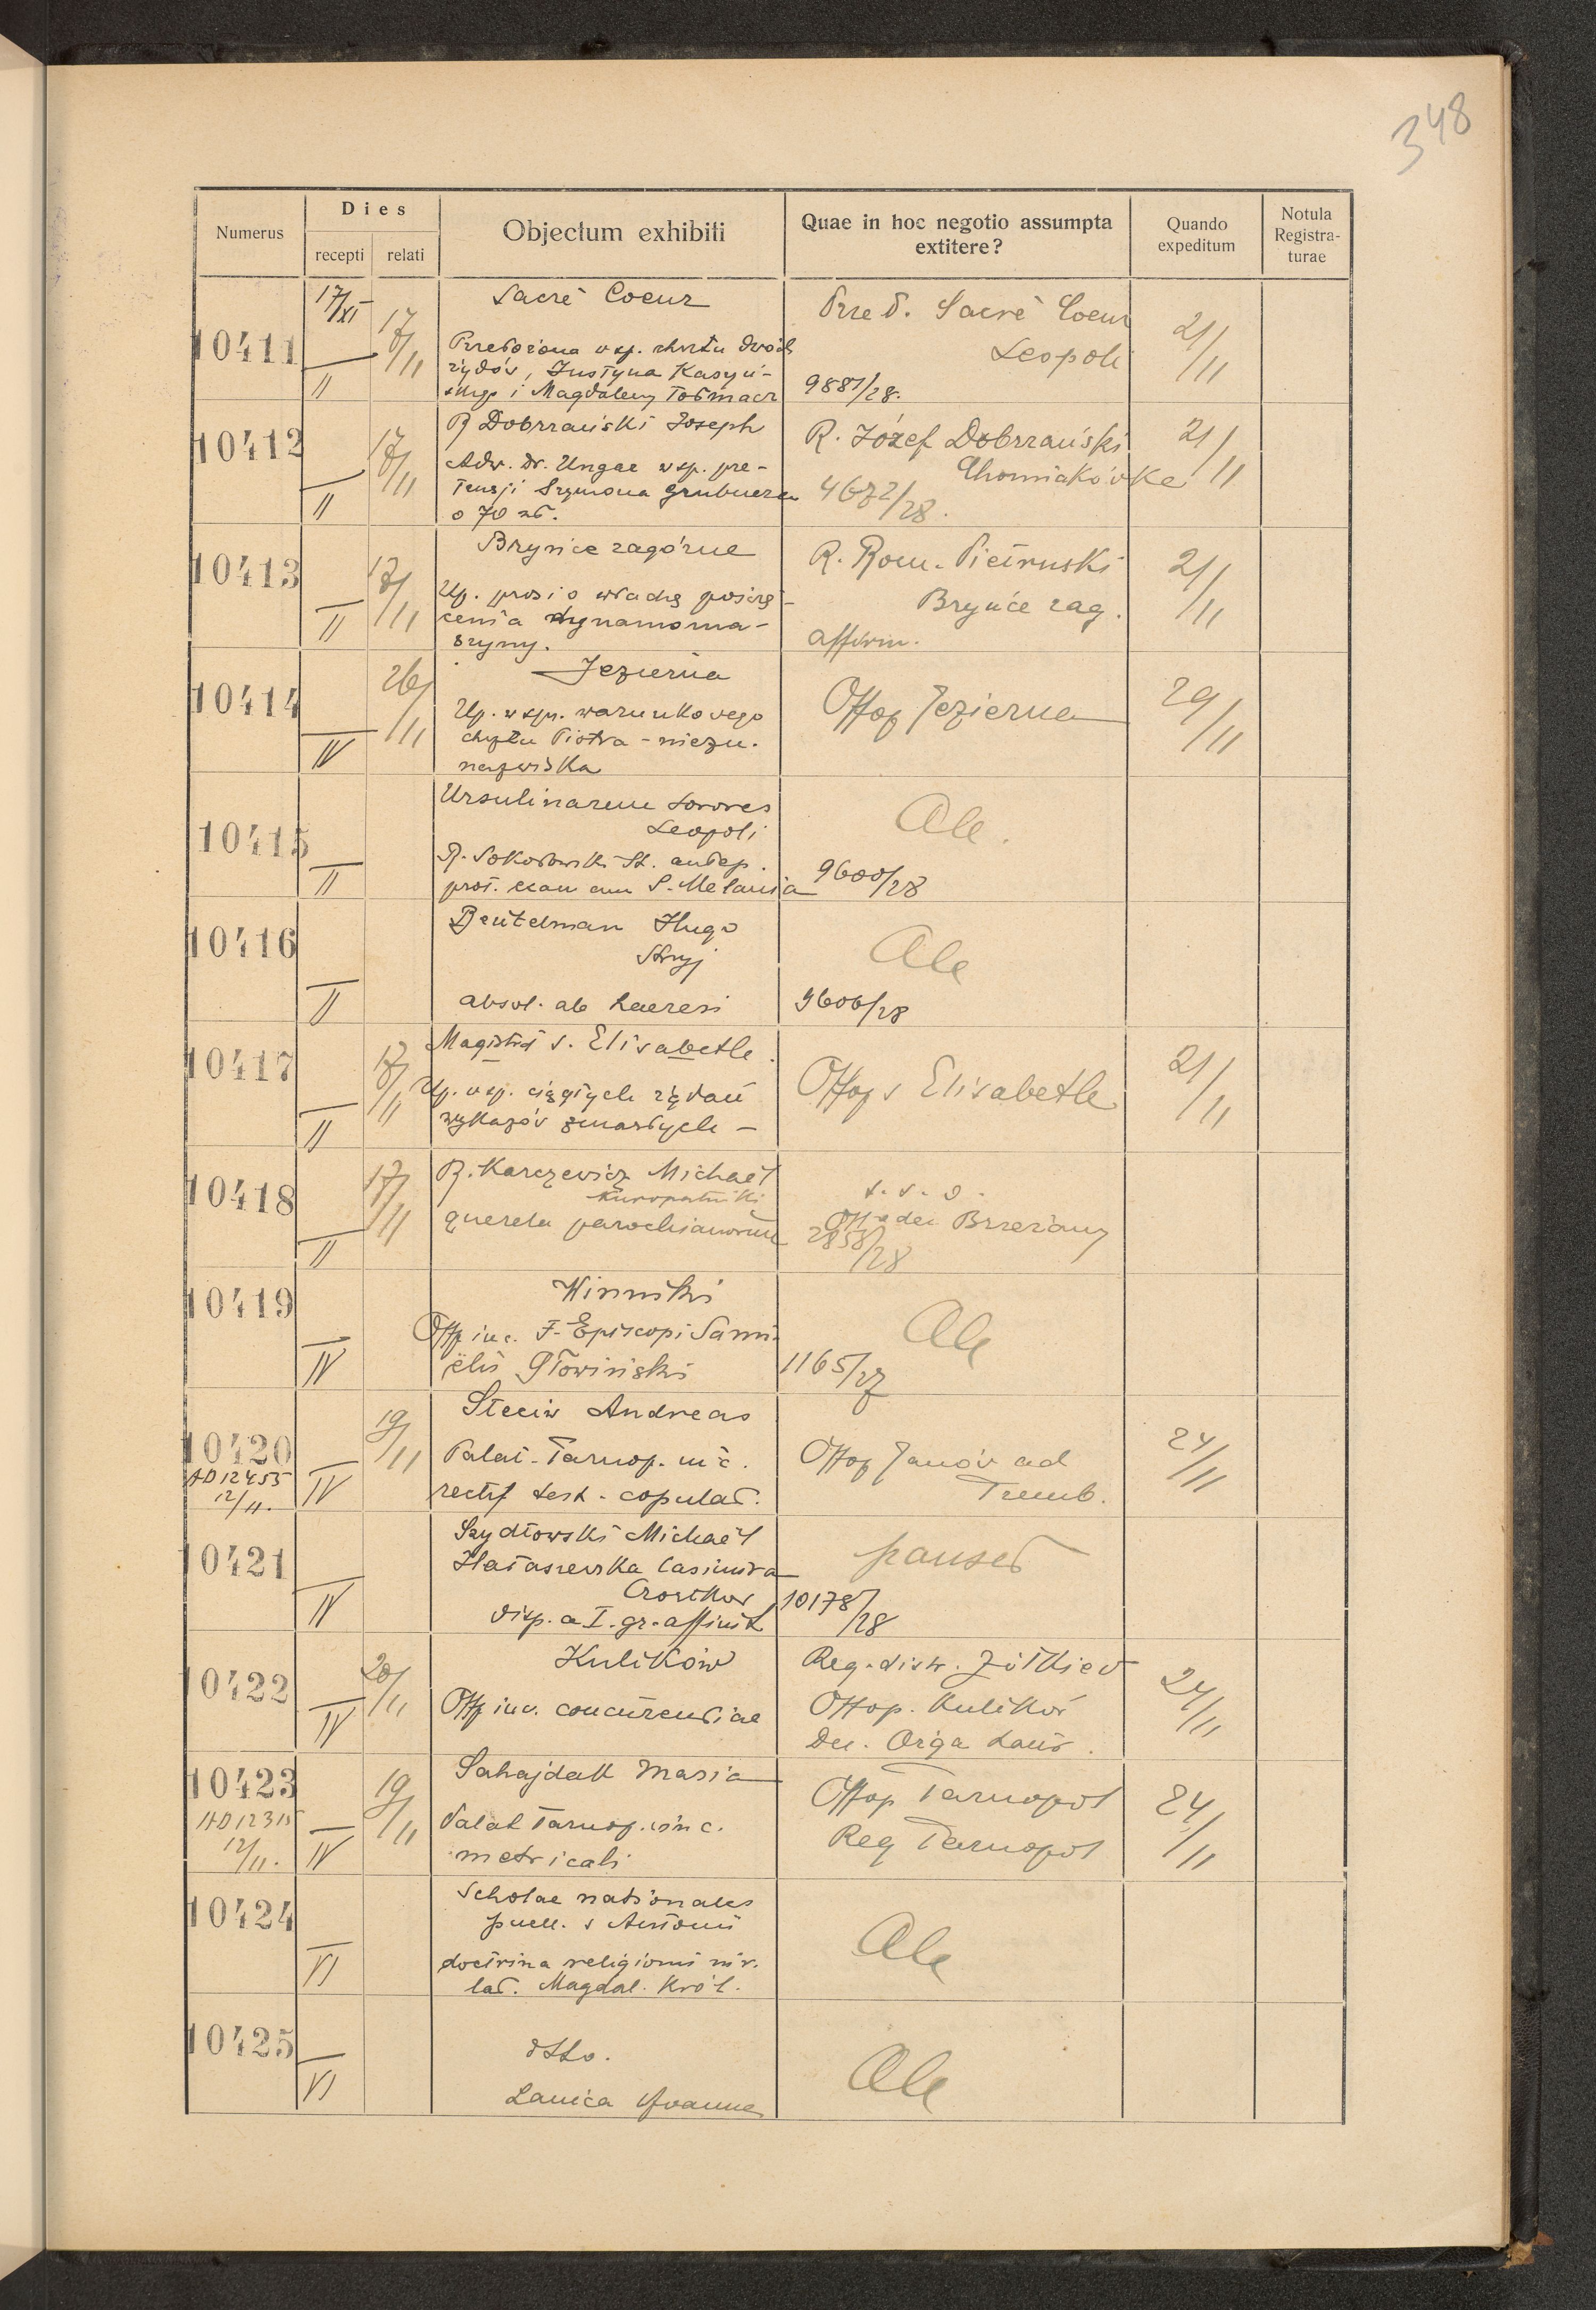 348
Numerus
Dies
recepti
relati
Objectum exhibiti
Quae in hoc negotio assumpta
extitere?
Quando
expeditum
Notula
Registra-
turae
10411
17/XI
II
17/11
Sacré Coeur
Przełożona wsp. chrztu dwóch
żydów, Justyna Kasyń-
skiego i Magdaleny Tołmacz
Przeł. Sacré Coeur
Leopoli
9881/28.
21/11
10412
II
17/11
R Dobrzański Joseph
Adw. dr. Ungar wsp. pre-
tensji Szymona Grubnera
o 70 zł.
R. Józef Dobrzański
Chomiakówka
4672/28.
21/11
10413
II
17/11
Brynce zagórne
Up. prosi o władzę poświę-
cenia dynamoma-
szyny.
R. Rom. Pietruski
Bryńce zag.
affirm.
21/11
10414
IV
26/11
Jezierna
Up. wspr. warunkowego
chrztu Piotra - niezn.
nazwiska
Offop Jezierna
29/11
10415
II
Ursulinarum Sorores
Leopoli
R. Sokołowski St.
prot. exam S. Melania
Ale.
9600/28
10416
II
Beutelman Hugo
Stryj
absol. ab haeresi
Ale
9606/28
10417
II
17/11
Magistri s. Elisabethe.
Up. wsp. ciągłych żądań
wykazów zmarłych -
Offop s Elisabethe
21/11
10418
II
17/11
R. Karczewicz Michaël
Kuropatniki
querela parochianorum
s. v. o.
Off dec Brzeżany
2858/28
10419
IV
Winniki
Offp inc. F. Episcopi Samu
ëlis Głowiński
Ale
1165/27
10420
AD 12455
12/11.
IV
19/11
Steciw Andreas
Palat. Tarnop. in c.
rectif test. copulat.
Offop Janów ad
Tremb.
24/11
10421
IV
Szydłowski Michaël
Hałaszewska Casimira
Czortkow
disp. a I. gr. affinit
pauset
10178/28
10422
IV
20/11
Kulików
Offp inc. concurentiae
Reg. distr. Żółkiew
Offop. Kulików
24/11
10423
AD 12315
12/11.
IV
19/11
Sahajdak Maria
Palat Tarnop. in c.
metricali
Offop Tarnopol
Reg Tarnopol
24/11
10424
VI
Scholae nationales
puell. s Antonii
doctrina religionis rit.
lat. Magdal. Król.
Ale
10425
VI
dtto.
Lanica Joanna
Ale